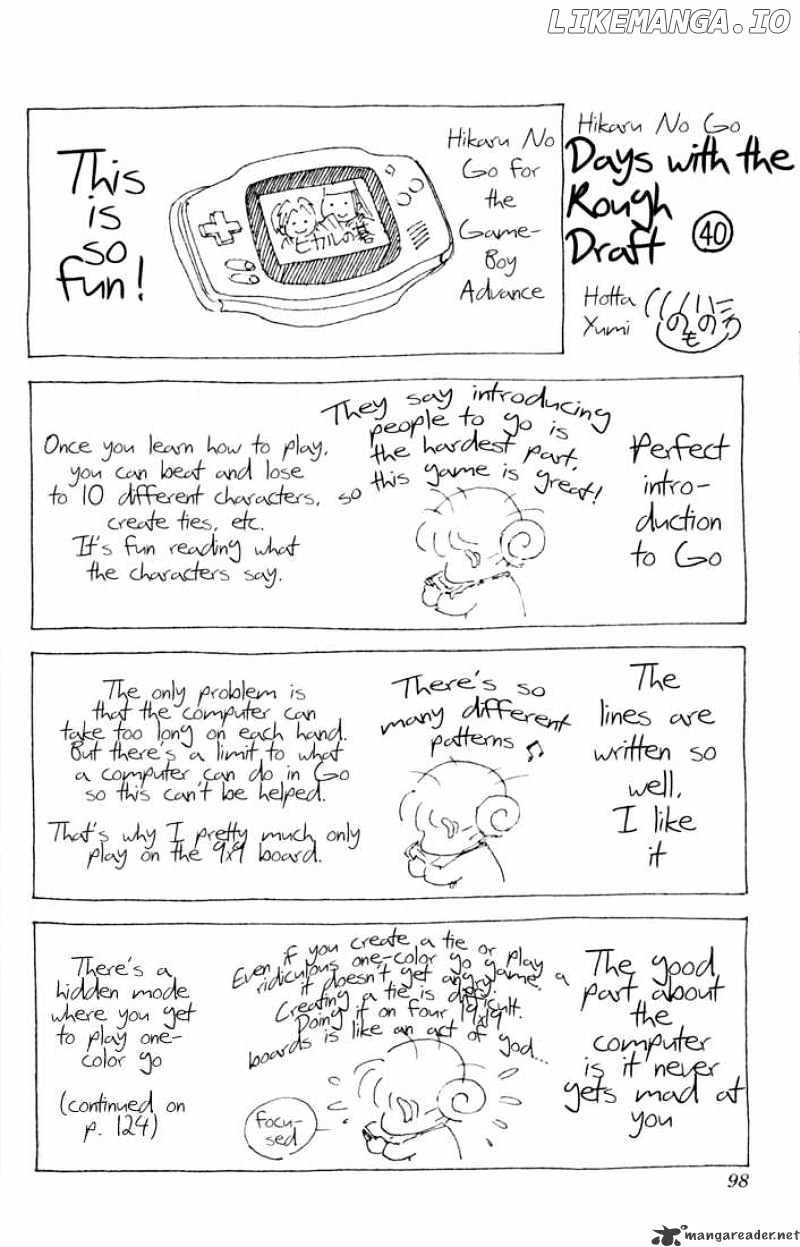 LIKEMANGA.IO
Hikaru No Go
Days with the
Rough
Draft 40
Hotta
Yumi
Hikaru No
Go for
the
Game-
Boy
Advance
ヒカルの碁
This
is
so
fun!
Perfect
intro-
duction
to Go
They say introducing
people to go is
the hardest part,
so this game is great!
Once you learn how to play,
you can beat and lose
to 10 different characters,
create ties, etc.
It's fun reading what
the characters say.
The
lines are
written so
well,
I like
it
There's so
many different
patterns ♫
The only problem is
that the computer can
take too long on each hand.
But there's a limit to what
a computer can do in Go
so this can't be helped.
That's why I pretty much only
play on the 9x9 board.
The good
part about
the
computer
is it never
gets mad at
you
Even if you create a tie or play a
ridiculous one-color go game,
it doesn't get angry.
Creating a tie is difficult.
Doing it on four 19x19
boards is like an act of god...
focu-
sed
There's a
hidden mode
where you get
to play one-
color go
(continued on
p. 124)
98
mangareader.net